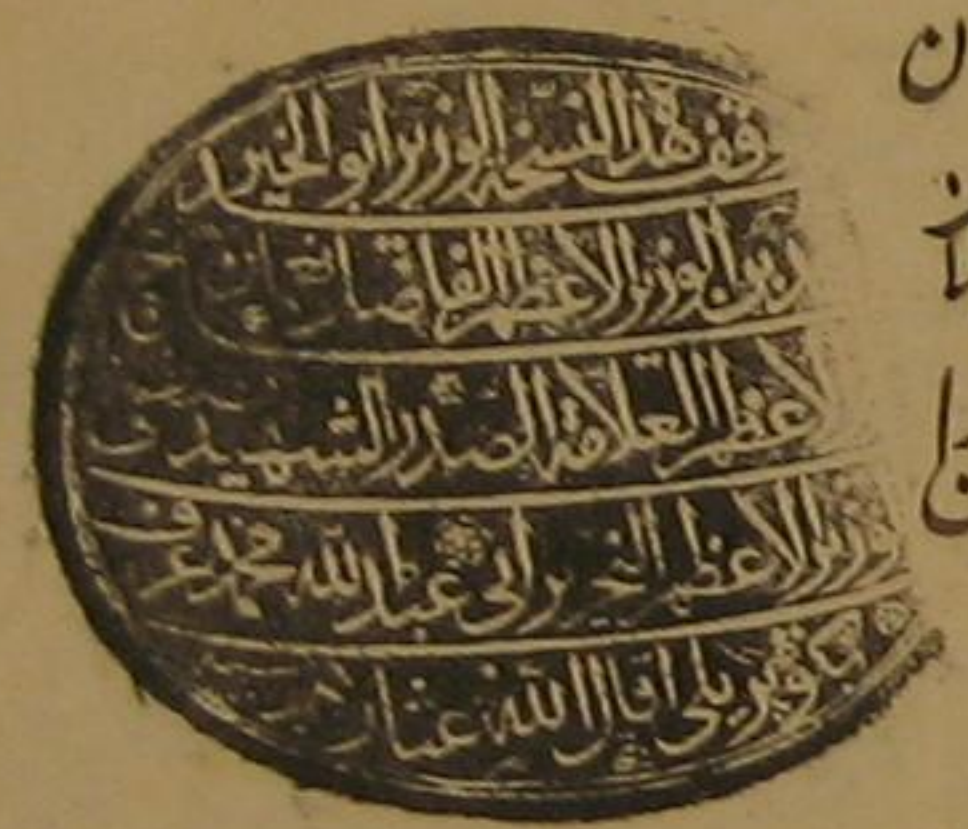 وقف هذا النسخة الوزير ابو الخير
بن الوزير الاعظم الفاضل
لاعظم العلامة الصدر الشهيد
لوزير الاعظم النحرير ابى عبد الله محمد عرف
بكوپريلى اقال الله عثار